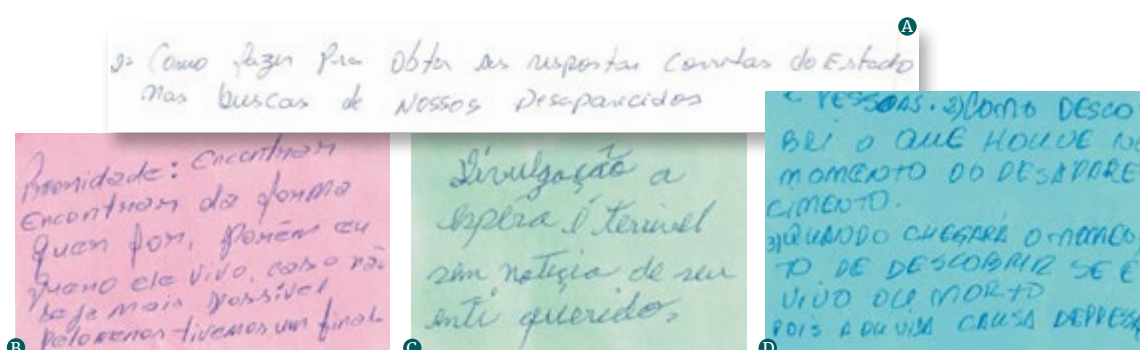 A
2- Como fazer pra obter as respostas corretas do Estado
nas buscas de nossos Desaparecidos
Prioridade: Encontrar
Encontrar da forma
quer for, porém eu
quero ele vivo, caso não
seja mais possível
pelomenos tivemos um final
B
Divulgação a
espera é terrivel
sem noticia de seu
enti querido,
C
E PESSOAS. 2) COMO DESCO
BRI O QUE HOUVE NO
MOMENTO DO DESAPARE
CIMENTO.
3) QUANDO CHEGARÁ O MOMEN
TO DE DESCOBRIR SE É
VIVO OU MORTO
POIS A DUVIDA CAUSA DEPRESSÃ
D